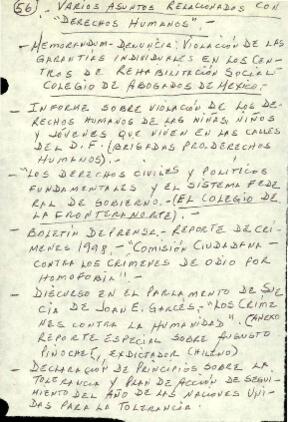 (56).- VARIOS ASUNTOS RELACIONADOS CON
"DERECHOS HUMANOS".-
- MEMORANDUM-DENUNCIA: VIOLACIÓN DE LAS
GARANTÍAS INDIVIDUALES EN LOS CEN-
TROS DE REHABILITACIÓN SOCIAL-
COLEGIO DE ABOGADOS DE MEXICO.-
- INFORME SOBRE VIOLACIÓN DE LOS DE-
RECHOS HUMANOS DE LAS NIÑAS, NIÑOS
Y JÓVENES QUE VIVEN EN LAS CALLES
DEL D.F. (BRIGADAS PRO.DERECHOS
HUMANOS).-
- "LOS DERECHOS CIVILES Y POLÍTICOS
FUNDAMENTALES Y EL SISTEMA FEDE
RAL DE GOBIERNO.- (EL COLEGIO DE
LA FRONTERA NORTE).-
- BOLETÍN DE PRENSA.- REPORTE DE CRÍ-
MENES 1998.- "COMISIÓN CIUDADANA
CONTRA LOS CRÍMENES DE ODIO POR
HOMOFOBIA".-
- DISCURSO EN EL PARLAMENTO DE SUE
CIA DE JOAN E. GARCÉS.- "LOS CRÍME
NES CONTRA LA HUMANIDAD". (ANEXO
REPORTE ESPECIAL SOBRE AUGUSTO
PINOCHET, EXDICTADOR CHILENO)
- DECLARACIÓN DE PRINCIPIOS SOBRE LA
TOLERANCIA Y PLAN DE ACCIÓN DE SEGUI-
MIENTO DEL AÑO DE LAS NACIONES UNI-
DAS PARA LA TOLERANCIA.